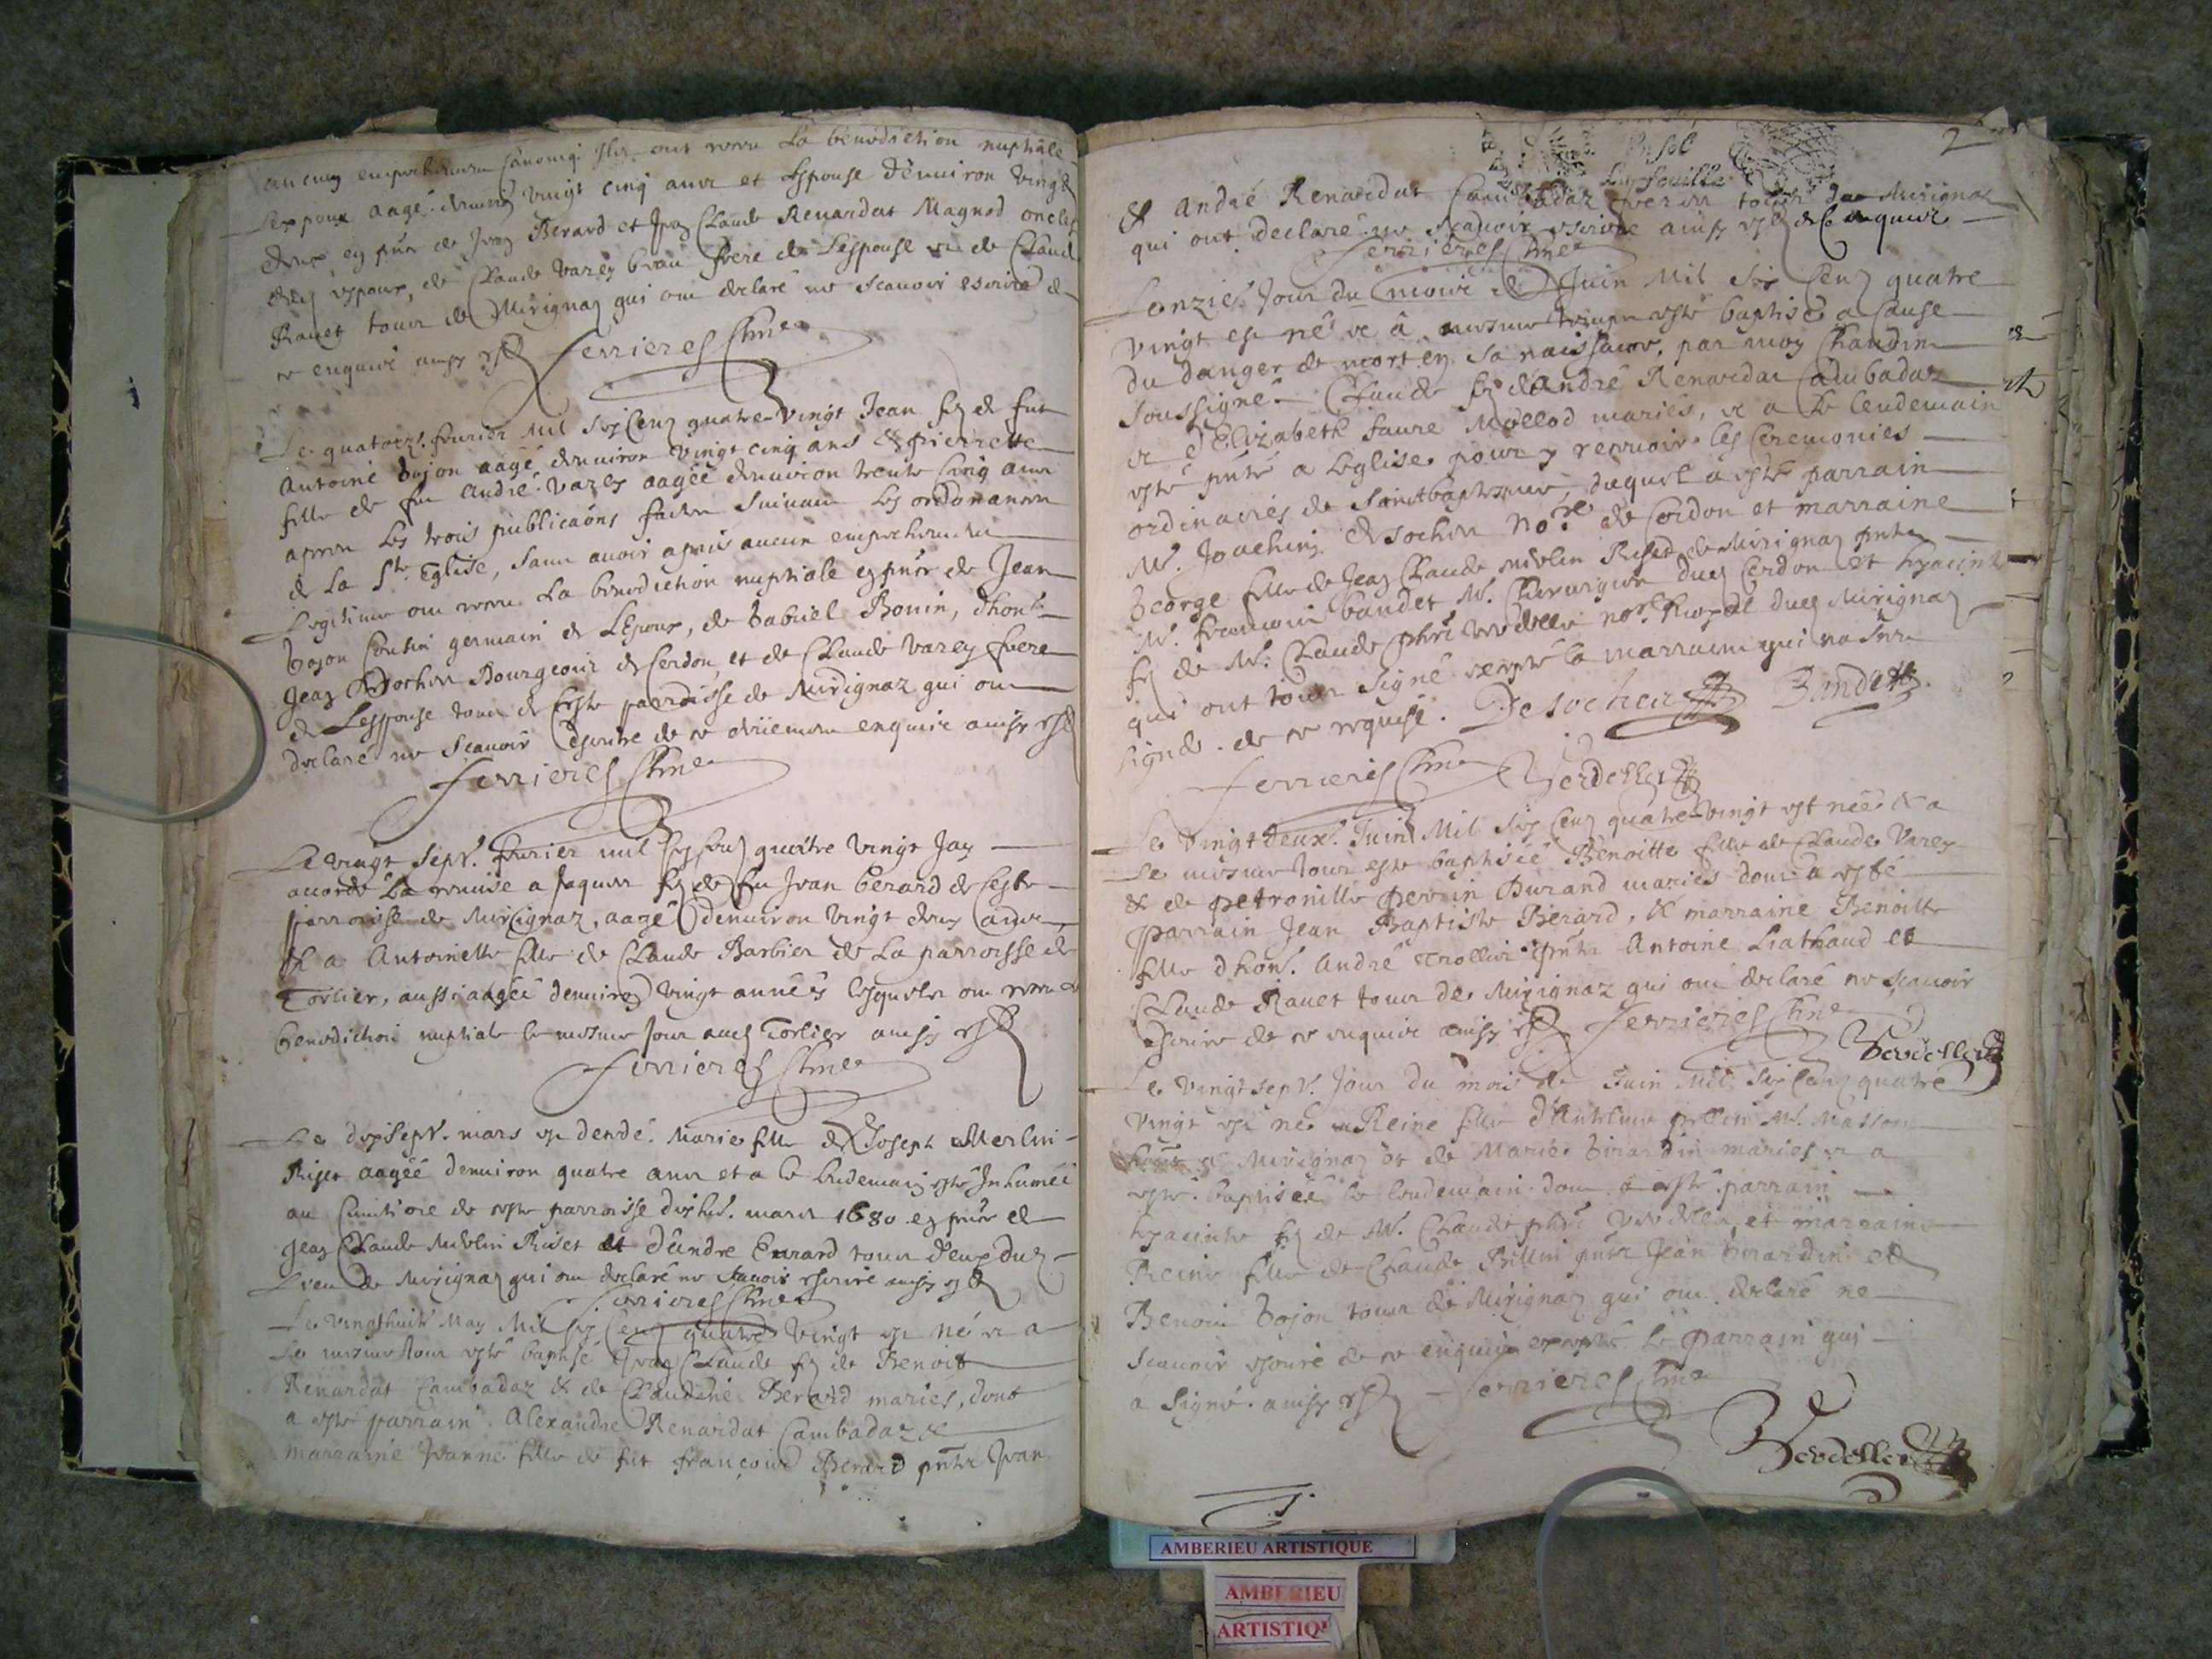 aucung empechement canoniq. Ils ont receu La benediction nuptiale
Lespoux aagé denviron vingt cinq ans et Lespouse denviron vingt
deux, en pnce de Jean Berard et Jean Claude Renardat Magnod oncles
dud espoux, de Claude Varey frere de Lespouse et de Claude
Ravet tous de Mirignaz qui ont declaré ne scavoir escrire de
ce enquis ainsy est
ferrieres
Le quatorze. fevrier Mil Six Cenz quatre-vingt Jean fz de fut
Antoine bojon aagé denviron vingt cinq ans & pierrette
fille de fut André Varey aagée denviron trente cinq ans
apres les trois publicaôns faites Suivant les ordonances
de La Ste Eglise, Sans avoir apris aucun empechement
Legitime ont receu La benediction nuptiale en pnce de Jean
bojon Cousin germain de LEpoux, de Gabriel Bonin, dhonble
Jean Desocher Bourgeois de Cerdon, et de Claude Varey frere
de Lespouse tous de ceste parroisse de Mirignaz qui ont
declaré ne scavoir escrire de ce enquis ainsy est
ferrieres
Le vingt Sept. fevrier mil six cenz quatre vingt Jay
acordé La remise a Jaques fz de fu Jean berard de ceste
parroisse de Mirignaz, aagé denviron vingt deux ans
& a Antoinette fille de Claude Barbier de La parroisse de
Torlier, aussi aagée denviron vingt années lesquels ont receu La
benediction nuptiale le mesme jour aud Torlier ainsy est
ferrieres
Le dix Sept. mars est decedé Marie fille de Joseph Merlin
Riset aagée denviron quatre ans et a le lendemain esté Inhumée
au Cimitiere de ceste parroisse dixhuit. mars 1680 en pnce de
Jean Claude Merlin Riset et dAndre Evrard tous deux dud
Lieu de Mirignaz qui ont declaré ne scavoir escrire ainsy est
ferrieres
Le vingthuit May Mil six cenz quatre vingt est né et a
Le mesme Jour esté baptisé Jean Claude fz de Benoit
Renardat Cambadaz & de Claudine Berard mariés, dont
a esté parrain Alexandre Renardat Cambadaz &
marraine Jeanne fille de fut françois Berard pnts Jean
2
& André Renardat Cambadaz tous de Mirignaz
qui ont declaré ne scavoir escrire ainsy est de ce enquis
ferrieres
Lonzie. Jour du mois de Juin Mil Six Cenz quatre
vingt est né et a mesme temps esté baptisé a Cause
du danger de mort en sa naissance, par moy
soussigné Claude fz dAndré Renardat Cambadaz
et dElizabeth faure Mollod mariés, et a le lendemain
esté pnté a Leglise pour y recevoir les Ceremonies
ordinaires de Saint baptesme, duquel a esté parrain
Mr. Joachin Desocher nore de Cerdon et marraine
George fille de Jean Claude Merlin Riset de Mirignaz pnts
Mr. françois baudet Mr. Chirurgien dud Cerdon et hyacinte
fz de Mr. Claude nore Royal dud Mirignaz
qui ont tous signé excepté la marraine qui na sceu
signé de ce requise. Desocher Baudet
ferrieres
Le Vingt deux. Juin Mil Six Cenz quatre-vingt est née & a
Le mesme Jour esté baptisée Benoitte fille de Claude Varey
& de petronille perrin Durand mariés dont a esté
parrain Jean Baptiste Berard, & marraine Benoitte
fille dhon. André Trollier pnts Antoine Liathaud et
Claude Ravet tous de Mirignaz qui ont declaré ne scavoir
escrire de ce enquis ainsy est ferrieres
Le vingt sept. Jour du mois de Juin Mil Six Cenz quatre
vingt est née Reine fille dAnthelme Mr. Masson
Mirignaz et de Marie Girardin mariés et a
esté baptisée le lendemain dont a esté parrain
hyacinte fz de Mr. Claude et marraine
Reine fille de Claude Billin pnts Jean Girardin et
Benoit bojon tous de Mirignaz qui ont declaré ne
scavoir escrire de ce enquis excepté Le parrain qui
a Signé ainsy est ferrieres
AMBERIEU ARTISTIQUE
AMBERIEU
ARTISTIQU